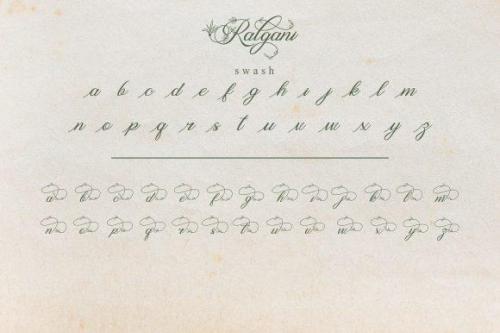 Kalgani
swash
a b c d e f g h i j k l m
n o p q r s t u v w x y z
a b c d e f g h i j k l m
n o p q r s t u v w x y z